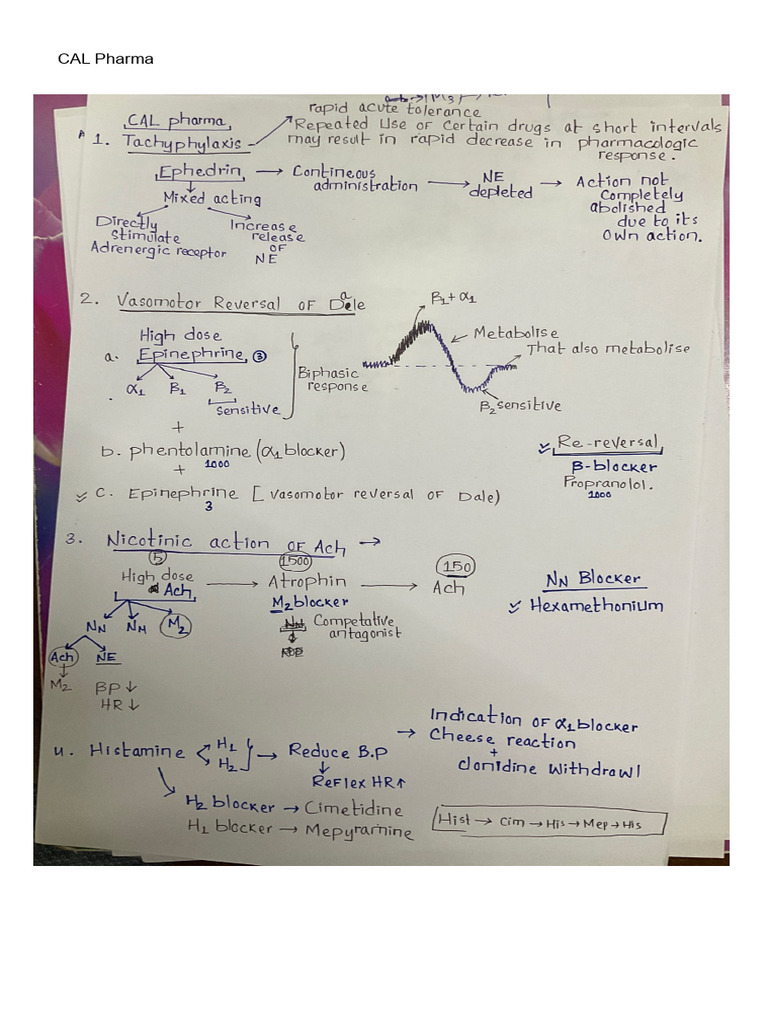 CAL Pharma
rapid acute tolerance
CAL pharma
Repeated Use of certain drugs at short intervals
1. Tachyphylaxis
may result in rapid decrease in pharmacologic
response.
Ephedrin → Contineous administration → NE depleted → Action not Completely abolished due to its Own action.
Mixed acting
Directly Stimulate Adrenergic receptor
Increase release OF NE
2. Vasomotor Reversal OF Dale
a
High dose
a. Epinephrine 3
α1 β1 β2
sensitive
Biphasic response
β1 + α1
Metabolise
That also metabolise
β2 sensitive
+
b. phentolamine (α1 blocker)
1000
+
c. Epinephrine [vasomotor reversal OF Dale)
3
Re-reversal
β-blocker
Propranolol.
1000
3. Nicotinic action OF Ach →
5
High dose Ach → 1500 Atrophin → 150 Ach
M2 blocker
NN NM M2
NN Competative antagonist
Ach NE
M2 BP↓
HR↓
NN Blocker
Hexamethonium
4. Histamine H1 H2 → Reduce B.P
Reflex HR↑
→ Indication OF α1 blocker
Cheese reaction
+
clonidine withdrawl
H2 blocker → Cimetidine
H1 blocker → Mepyramine
Hist → Cim → His → Mep → His